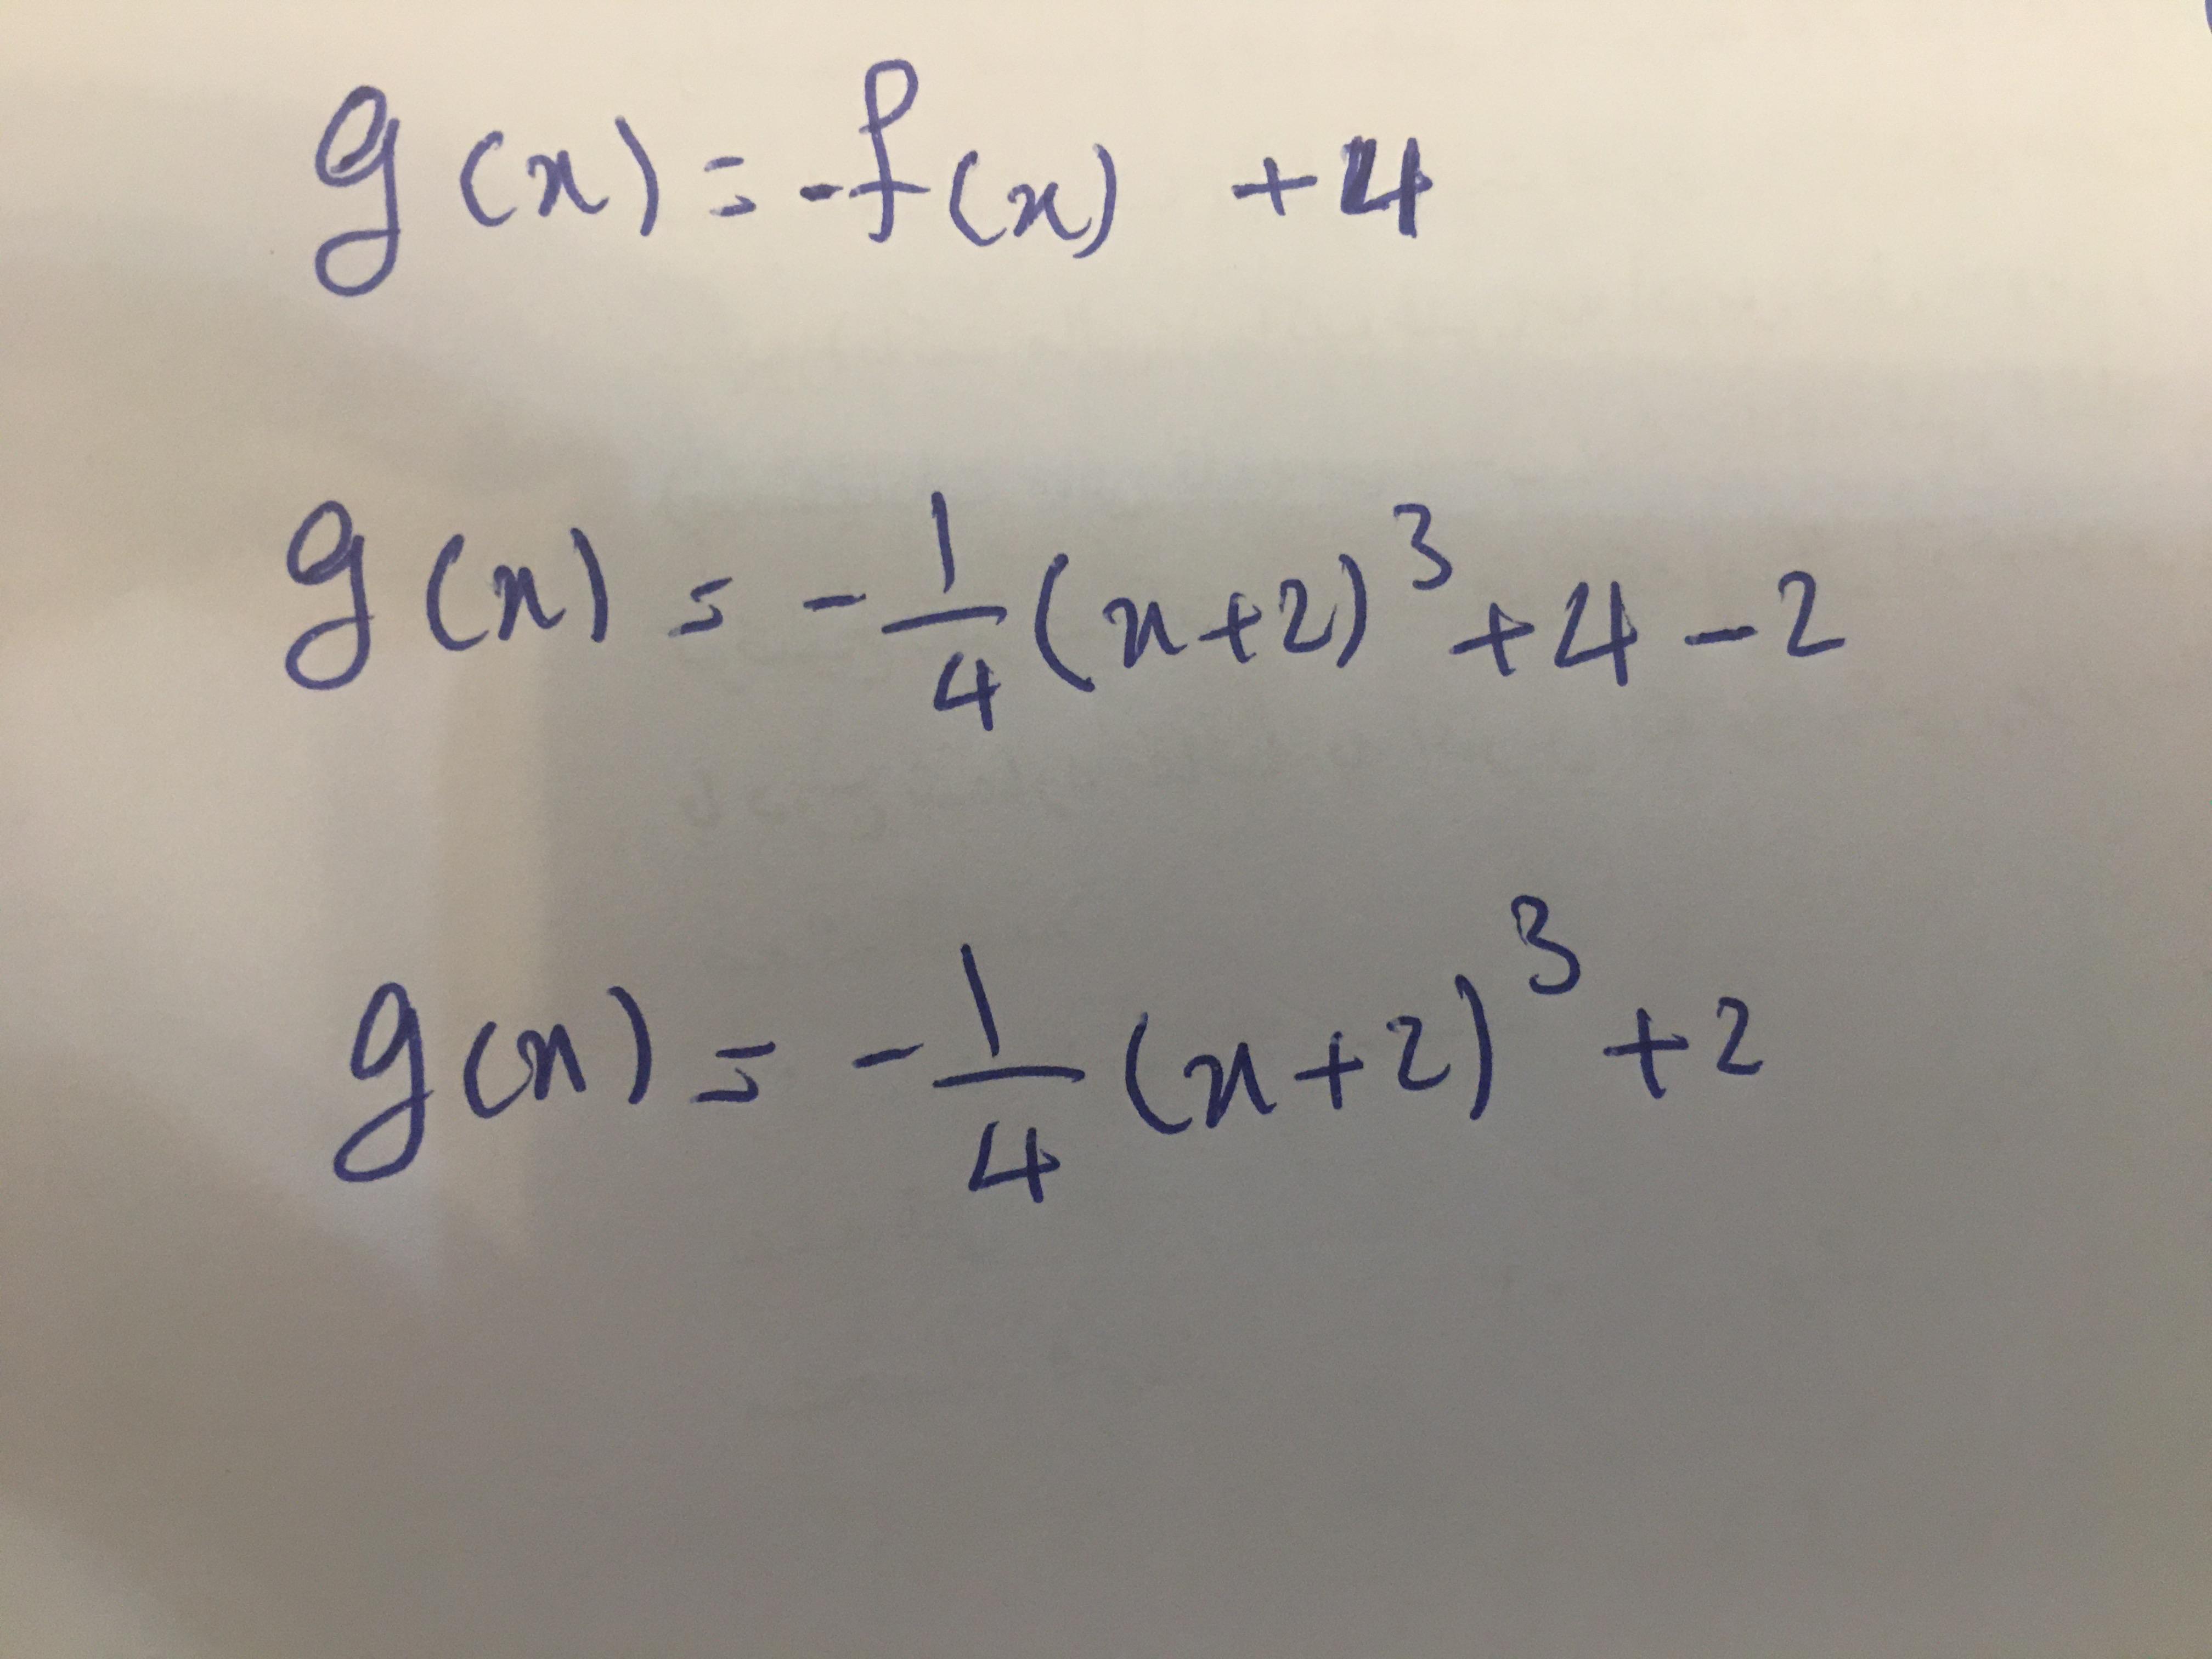 g(x) = -f(x) +4
g(x) = -1/4(x+2)³+4-2
g(x) = -1/4(x+2)³+2